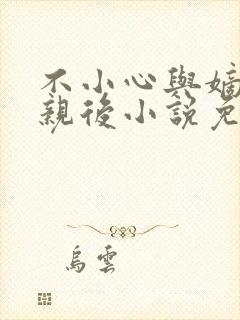 不小心與嫡
親後小說免
烏雲